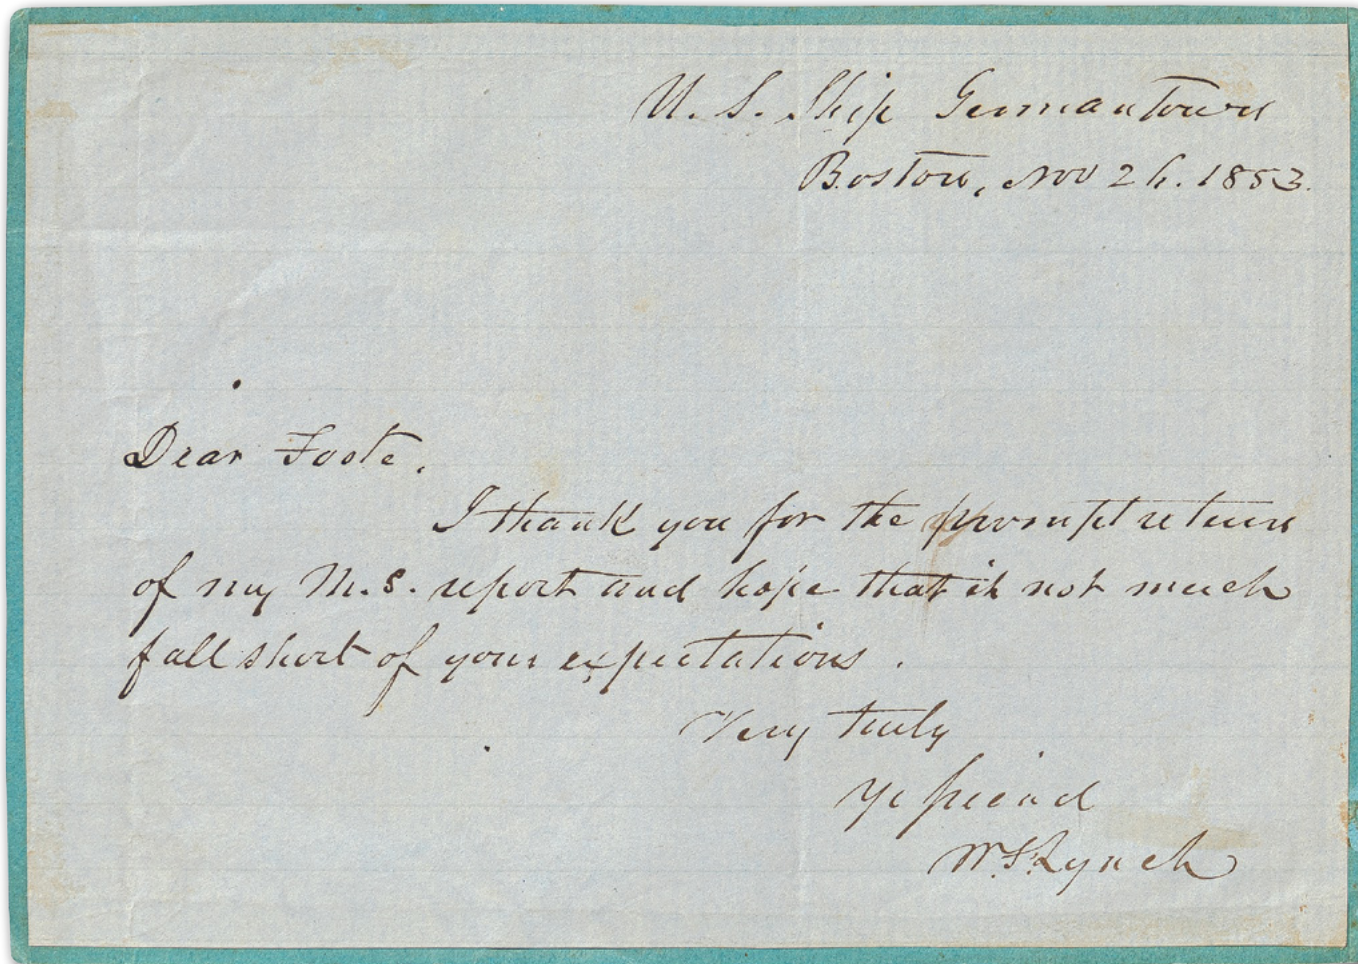 U. S. Ship Germantown
Boston, Nov 26. 1853.
Dear Foote.
I thank you for the prompt return
of my M.S. report and hope that it not much
fall short of your expectations.
Very truly
Yr friend
W. F. Lynch